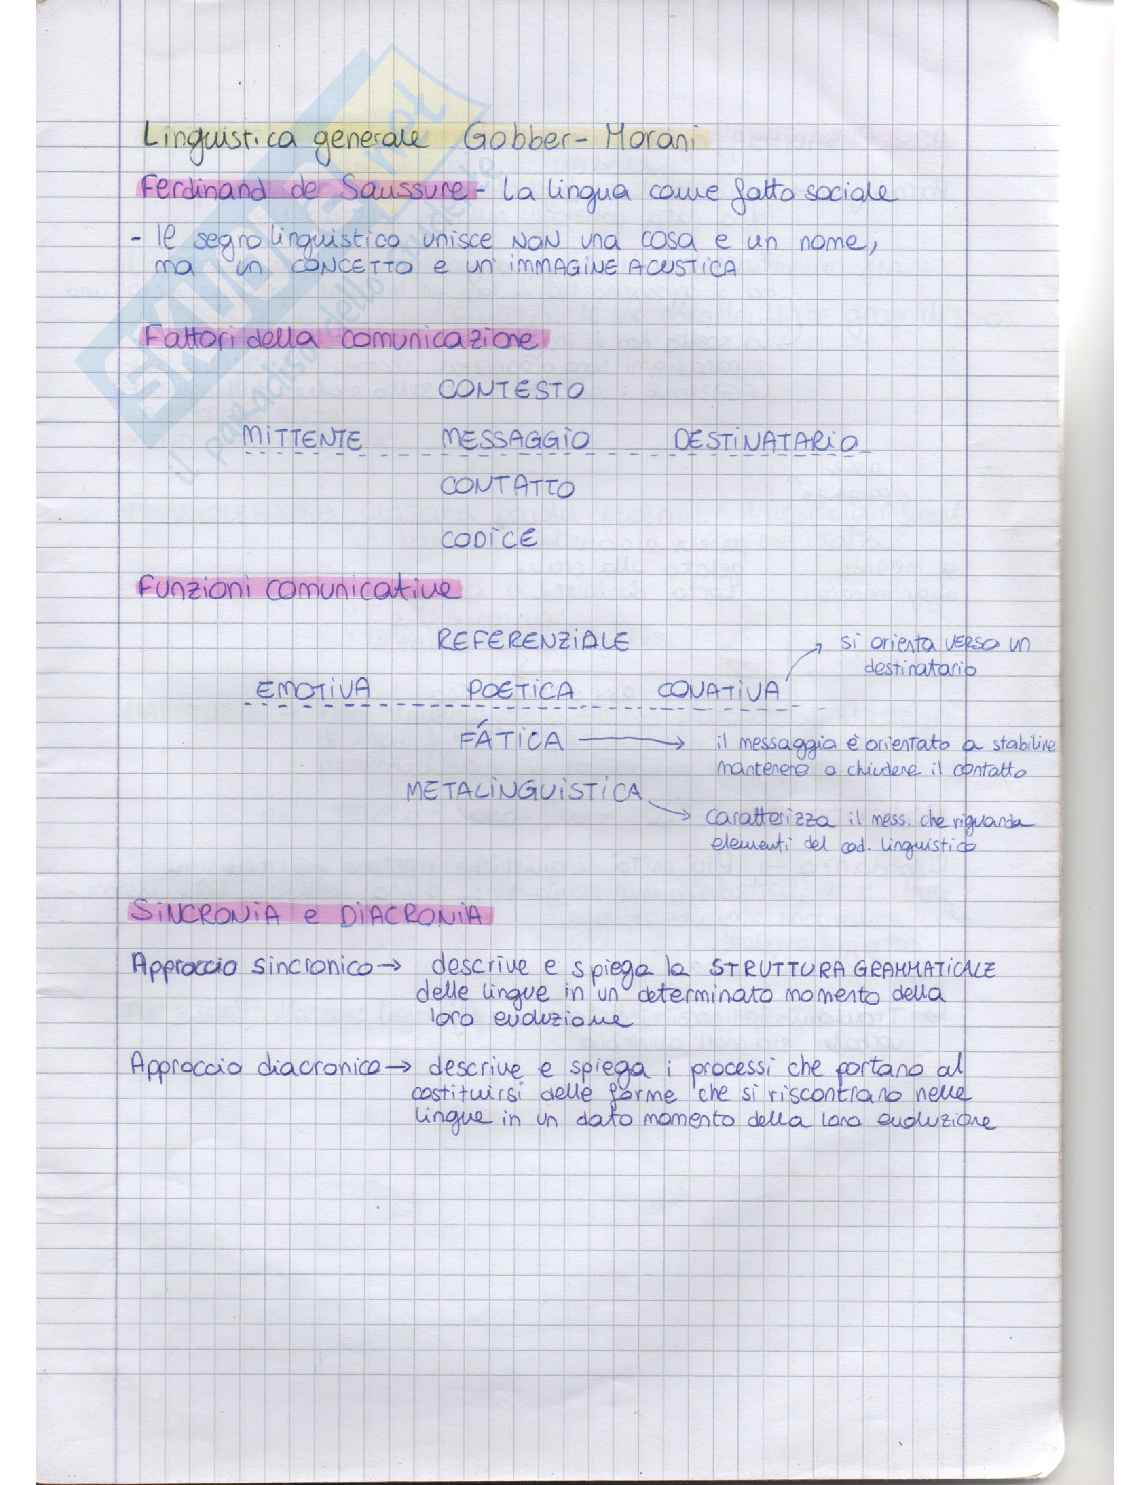 Linguistica generale Gobber-Morani
Ferdinand de Saussure - La lingua come fatto sociale
- Il segno linguistico unisce NON una cosa e un nome,
ma un CONCETTO e un' IMMAGINE ACUSTICA
Fattori della comunicazione
CONTESTO
MITTENTE MESSAGGIO DESTINATARIO
CONTATTO
CODICE
Funzioni comunicative
REFERENZIALE
si orienta VERSO un
destinatario
EMOTIVA POETICA CONATIVA
FÁTICA → il messaggio è orientato a stabilire
mantenere o chiudere il contatto
METALINGUISTICA
→ caratterizza il mess. che riguarda
elementi del cod. linguistico
SINCRONIA e DIACRONIA
Approccio sincronico → descrive e spiega la STRUTTURA GRAMMATICALE
delle lingue in un determinato momento della
loro evoluzione
Approccio diacronico → descrive e spiega i processi che portano al
costituirsi delle forme che si riscontrano nelle
lingue in un dato momento della loro evoluzione